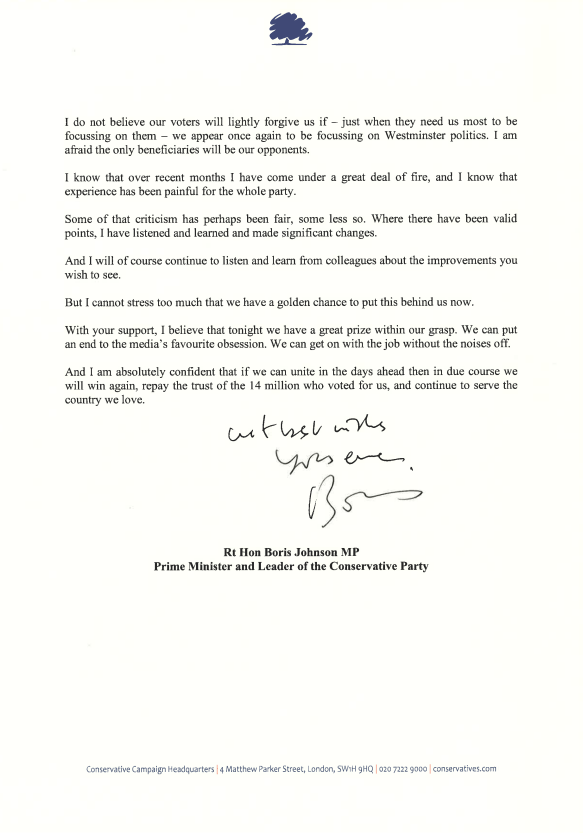 I do not believe our voters will lightly forgive us if – just when they need us most to be
focussing on them – we appear once again to be focussing on Westminster politics. I am
afraid the only beneficiaries will be our opponents.
I know that over recent months I have come under a great deal of fire, and I know that
experience has been painful for the whole party.
Some of that criticism has perhaps been fair, some less so. Where there have been valid
points, I have listened and learned and made significant changes.
And I will of course continue to listen and learn from colleagues about the improvements you
wish to see.
But I cannot stress too much that we have a golden chance to put this behind us now.
With your support, I believe that tonight we have a great prize within our grasp. We can put
an end to the media's favourite obsession. We can get on with the job without the noises off.
And I am absolutely confident that if we can unite in the days ahead then in due course we
will win again, repay the trust of the 14 million who voted for us, and continue to serve the
country we love.
with best wishes
Yours ever.
Boris
Rt Hon Boris Johnson MP
Prime Minister and Leader of the Conservative Party
Conservative Campaign Headquarters | 4 Matthew Parker Street, London, SW1H 9HQ | 020 7222 9000 | conservatives.com